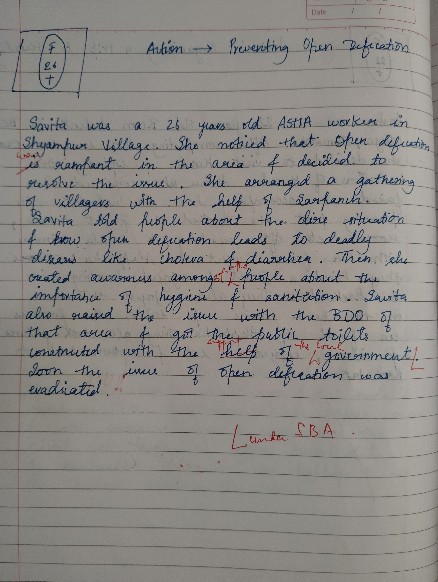 Date
F
26
+
Action → Preventing Open Defication
Savita was a 26 years old ASHA worker in
Shyampur Village. She noticed that Open defication
was
is rampant in the area & decided to
resolve the issue. She arranged a gathering
of villagers with the help of Sarpanch.
Savita told people about the dire situation
& how open defication leads to deadly
diseases like cholera & diarrhea. Then she
created awareness amongst people about the
importance of hygiene & sanitation. Savita
also raised the issue with the BDO of
that area & got the public toilets
the local
constructed with the help of government
Soon the issue of open defication was
eradicated.
under SBA